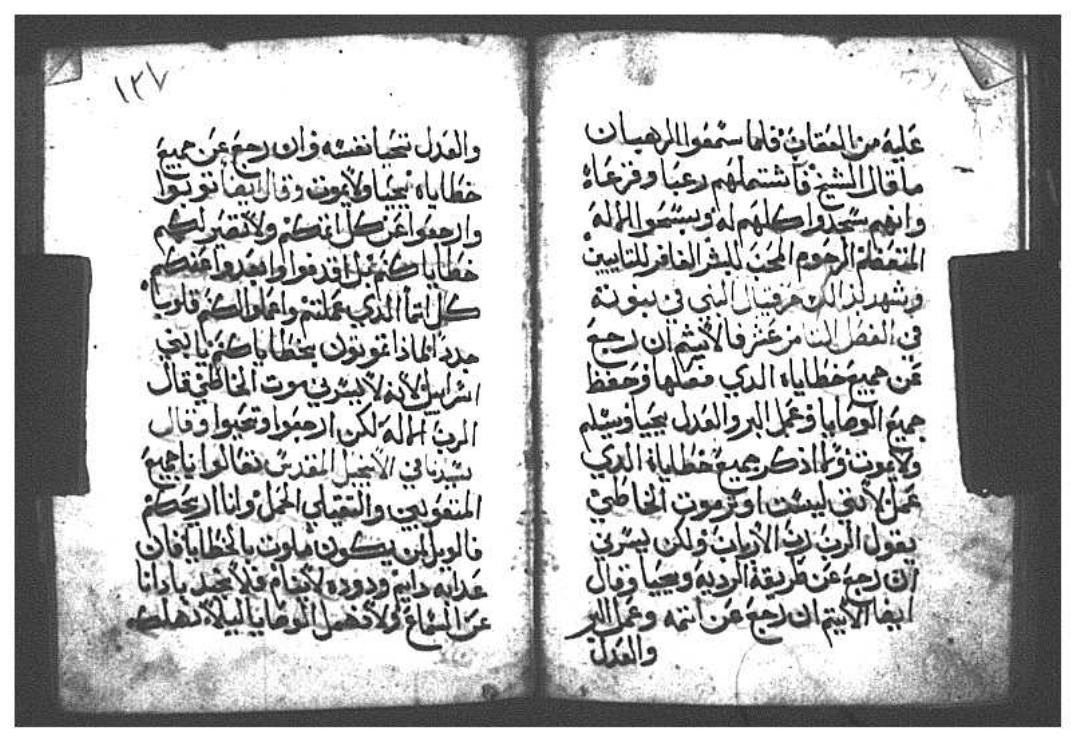 عليه من العقاب فلما سمعوا الرهبان
ما قال الشيخ فاشتملهم رعبا وفزعاة
وانهم سجدوا كلهم له وسبحوا الاله
المتعظم الرحوم المحب للبشر الغافر للتايبين
ويشهد لذلك حزقيال النبي في نبوته
في الفصل الثامن عشر فالاثيم ان رجع
عن جميع خطاياه الدي فعلها وحفظ
جميع الوصايا وعمل البر والعدل يحيا ويسلم
ولا يموت وما ادكر جميع خطاياة الدي
عمل لأنني ليست اوثر موت الخاطي
يقول الرب رب الارباب ولكن يسرني
ان رجع عن طريقة الرديه ويحيا وقال
ايضا الأثيم ان رجع عن أثمه وعمل البر
والعدل
١٢٧
والعدل تحيا نفسه وان رجع عن جميع
خطاياه يحيا ولا يموت وقال ايضا توبوا
وارجعوا عن كل اثمكم ولا تصير لكم
خطاياكم بل اقدفوا وابعدوا عنكم
كل اثما الذي عملتم واعملوا لكم قلوبا
جددا لماذا تموتون بخطاياكم يا بني
اسراييل لأنه لا يسرني موت الخاطي قال
الرب الاله لكن ارجعوا وتحيوا وقال
سيدنا في الأنجيل المقدس تعالوا يا جميع
المتعوبين والثقيلي الحمل وانا اريحكم
فالويل لمن يكون ملوت بالخطايا فان
عدابه دايم ودوده لا ينام فلا نجيد يا دانا
عن السماع ولا نهمل الوصايا ليلا نهلك